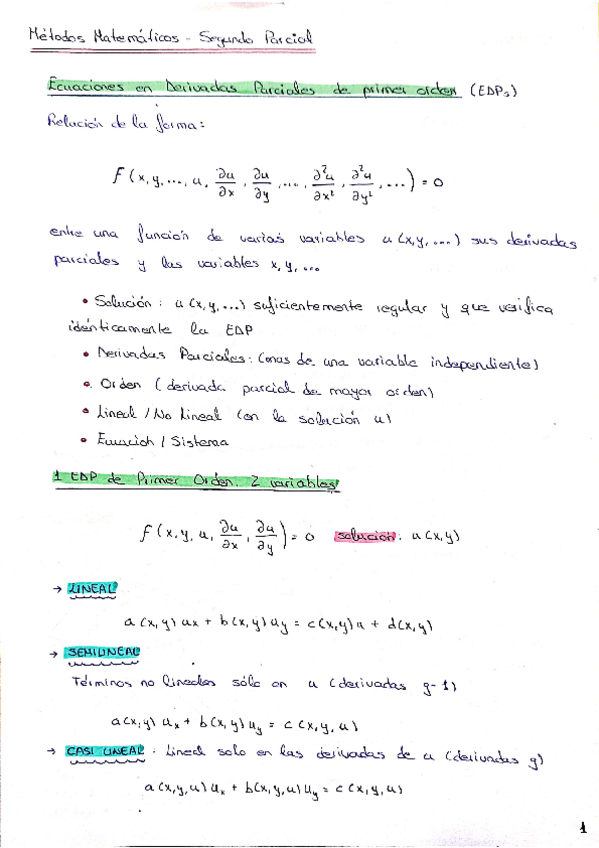 Métodos Matemáticos - Segundo Parcial
Ecuaciones en Derivadas Parciales de primer orden (EDPs)
Relación de la forma:
F(x,y,..., u, ∂u/∂x, ∂u/∂y, ..., ∂²u/∂x², ∂²u/∂y², ...) = 0
entre una función de varias variables u(x,y,...) sus derivadas
parciales y las variables x, y, ...
• Solución: u(x,y,...) suficientemente regular y que verifica
idénticamente la EDP
• Derivadas Parciales: (mas de una variable independiente)
• Orden (derivada parcial de mayor orden)
• Lineal / No Lineal (en la solución u)
• Ecuación / Sistema
1 EDP de Primer Orden. 2 variables
f(x,y,u, ∂u/∂x, ∂u/∂y) = 0 solución: u(x,y)
→ LINEAL
a(x,y) ux + b(x,y) uy = c(x,y)u + d(x,y)
→ SEMILINEAL
Términos no lineales sólo en u (derivadas g-1)
a(x,y) ux + b(x,y) uy = c(x,y,u)
→ CASI LINEAL: Lineal solo en las derivadas de u (derivadas g)
a(x,y,u) ux + b(x,y,u) uy = c(x,y,u)
1